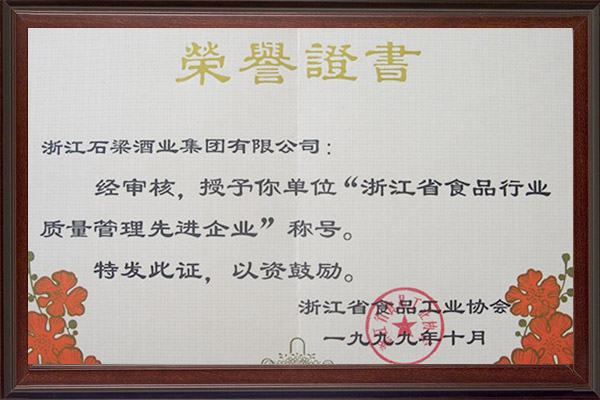 榮譽證書
浙江石梁酒业集团有限公司：
经审核，授予你单位“浙江省食品行业
质量管理先进企业”称号。
特发此证，以资鼓励。
浙江省食品工业协会
一九九九年十月